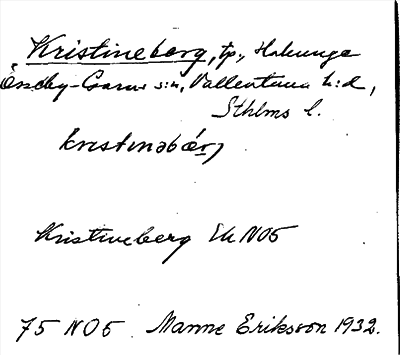 Kristineberg, tp., Hakunge
Össeby-Garns s:n, Vallentuna h:d,
Sthlms l.
krɪstinəbǽrj
Kristineberg Ek NO5
75 NO5 Manne Eriksson 1932.